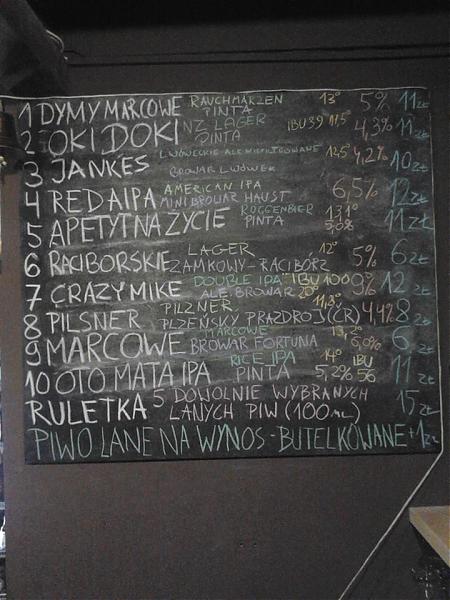 1 DYMY MARCOWE RAUCHMARZEN PINTA 13° 5% 11 zł
2 OKI DOKI NZ LAGER PINTA IBU 39 11,5° 4,3% 11 zł
3 JANKES LWÓWECKIE ALE NIEFILTROWANE BROWAR LWÓWEK 12,5° 4,2% 10 zł
4 RED AIPA AMERICAN IPA MINI BROWAR HAUST 6,5% 12 zł
5 APETYT NA ŻYCIE ROGGENBIER PINTA 13,1° 5,0% 11 zł
6 RACIBORSKIE LAGER ZAMKOWY-RACIBÓRZ 12° 5% 6 zł
7 CRAZY MIKE DOUBLE IPA ALE BROWAR IBU 100 20° 9% 12 zł
8 PILSNER PILZNER PLZEŃSKY PRAZDROJ (ČR) 11,3° 4,4% 8 zł
9 MARCOWE MARCOWE BROWAR FORTUNA 13,2° 6,0% 6 zł
10 OTO MATA IPA RICE IPA PINTA 14° 5,2% IBU 56 11 zł
RULETKA 5 DOWOLNIE WYBRANYCH LANYCH PIW (100 ML) 15 zł
PIWO LANE NA WYNOS - BUTELKOWANE +1 zł